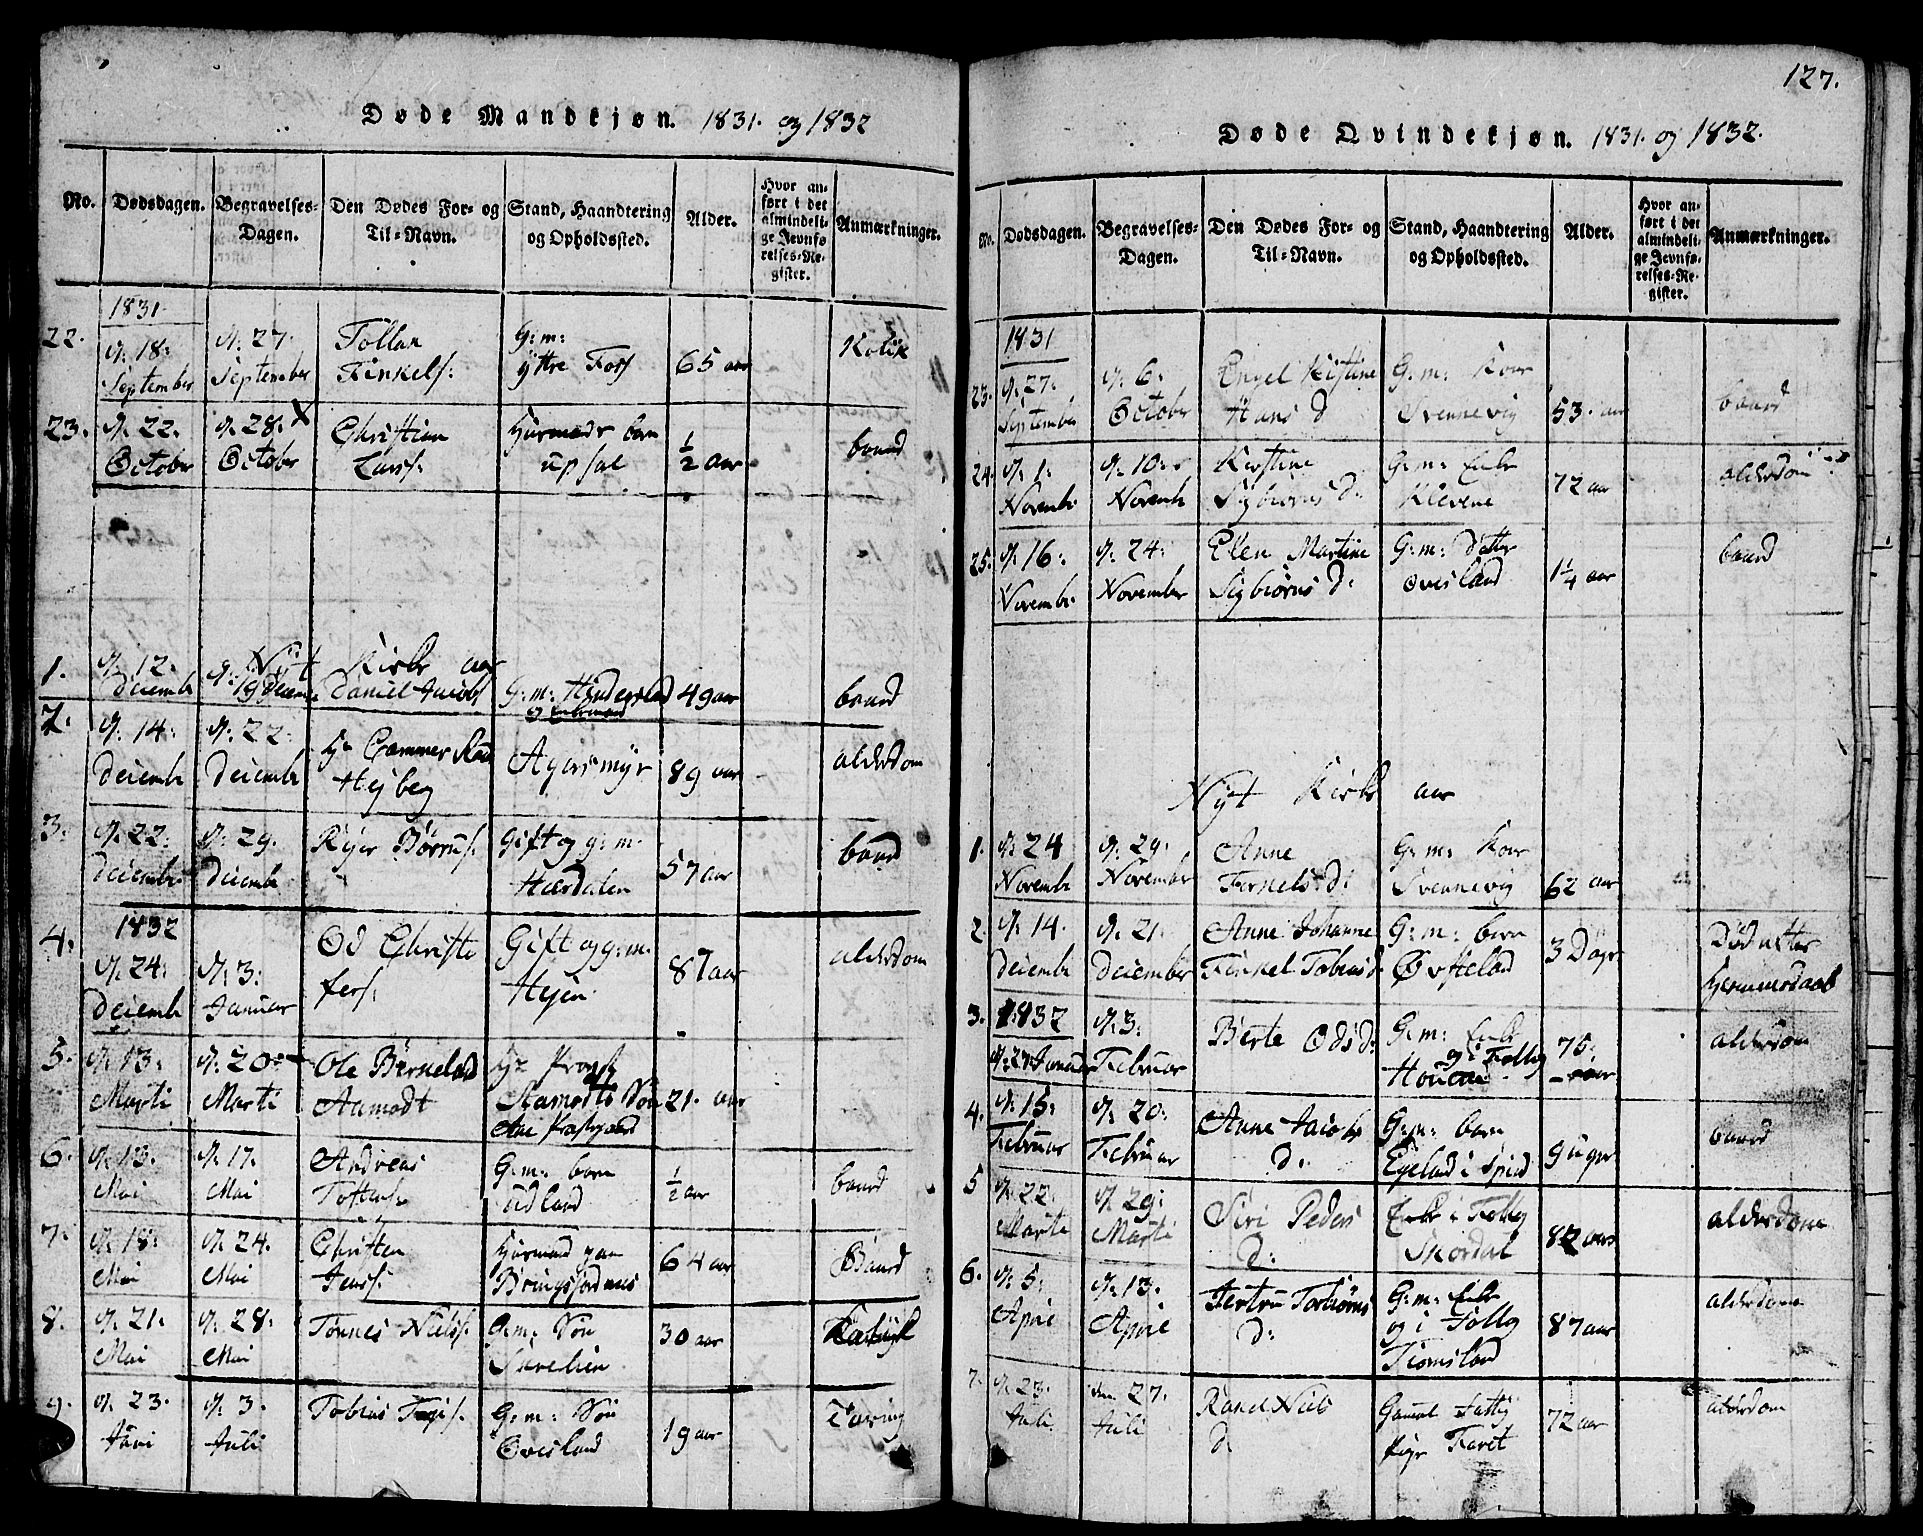 Døde Mandkjøn. 1831. og 1832
No.
Dødsdagen.
Begravelses-
Dagen.
Den Dødes For- og
Til-Navn.
Stand, Haandtering
og Opholdssted.
Alder.
Hvor an-
ført i det
almindeli-
ge Jevnfø
relses-Re-
gister.
Anmærkninger.
1831.
22.
d. 18.
September
d. 27.
September
Tollak
Finkels:
G: m:
yttre Fors
65 aar
Kolik
23.
d. 22.
October
d. 28. X
October
Christian
Lars:
Huusmads barn
upsal
½ aar
baard
Nyt Kirke aar
1.
d. 12.
Deiemb
d. 19 Deiemb
Daniel Jacobs
G: m: Hindersland
49 aar
baard
2.
d. 14.
Deiemb
d. 22.
Deiemb
Hr Cammer Raad
Hejberg
Agersmyr
89 aar
alderdom
3.
d. 22.
Deiemb
d. 29.
Deiemb
Rejer Børrus:
Gift og g: m.
Hærdalen
57 aar
baard
4.
1832
d. 24.
Deiemb
d. 3.
Januar
Od Christo
fers:
Gift og g: m.
Hejen
87 aar
alderdom
5.
d. 13.
Marti
d. 20.
Marti
Ole Børneland
Aamodt
Hr Provst
Aamodts Søn
21. aar
6.
d. 13.
Mai
d. 17.
Mai
Andreas
Tostens:
G: m: barn
Udland
½ aar
baard
7.
d. 18.
Mai
d. 24.
Mai
Christen
Jens:
Huusmand paa
Bringsfordnes
64 aar
Baard
8.
d. 21.
Mai
d. 28.
Mai
Tønnes Niels:
G: m: Søn
30 aar
9.
d. 23.
Juni
d. 3.
Juli
Tobias
G: m: Søn
Ovesland
19 aar
Tæring
127.
Døde Qvindekjøn. 1831. og 1832.
No.
Dødsdagen.
Begravelses-
Dagen.
Den Dødes For- og
Til-Navn.
Stand, Haandtering
og Opholdssted.
Alder.
Hvor an-
ført i det
almindeli-
ge Jevnfø-
relses-Re-
gister.
Anmærkninger.
1831
23.
d. 27.
September
d. 6.
October
Engel Kistine
Hans d
G: m: Kone
Svennevig
53. aar
baard
24.
d. 1.
Novemb.
d. 10.
Novemb
Kirstine
Sigbiørns D:
G: m: Enke
Klevene
72 aar
alderdom
25.
d. 16.
Novemb.
d. 24.
November
Elen Martine
Sigbiørns d:
G: m: datter
Ovesland
1¼ aar
baard
Nyt Kirke aar
1.
d. 24
Novemb
d. 29.
November
Anne
Finkels d:
G: m: Kone
Svennevig
62 aar
2.
d. 14.
Deiemb
d. 21.
Deiember
Anne Johanne
Finkel Tobias d.
G: m: barn
Øvfteland
3 Dage
Død efter
hiemmedaab
3.
1832
d. 27 Januar
d. 3.
Februar
Berte Ods d:
G: m: Enke
75.
aar
alderdom
4.
d. 15.
Februar
d. 20.
Februar
Anne Jacobs
D:
G: m: barn
Egeland i Spind
9 uger
baard
5
d. 22.
Marti
d. 29.
Marti
Siri Peders
D:
Enke i Fattig
Skordal
82 aar
alderdom
6.
d. 5.
April
d. 13.
April
Jertru Torbiørns
D:
G: m: Enke
og i Fattig
Tiomsland
87 aar
alderdom
7.
d. 23.
Juli.
den 27.
Juli
Ranel Niels
d
Gamel Fattig
Pige Faret
72 aar
alderdom